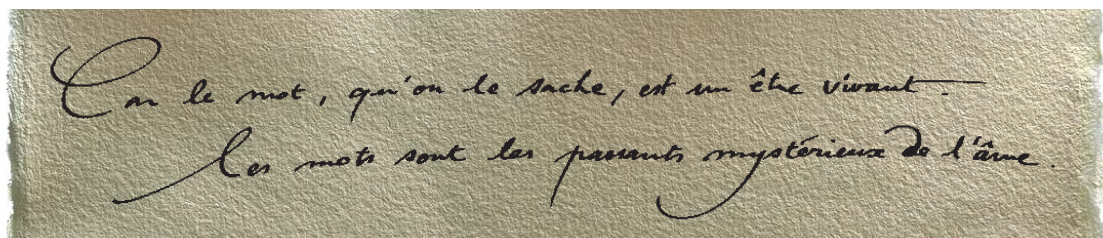 Car le mot, qu'on le sache, est un être vivant.
Les mots sont les passants mystérieux de l'âme.